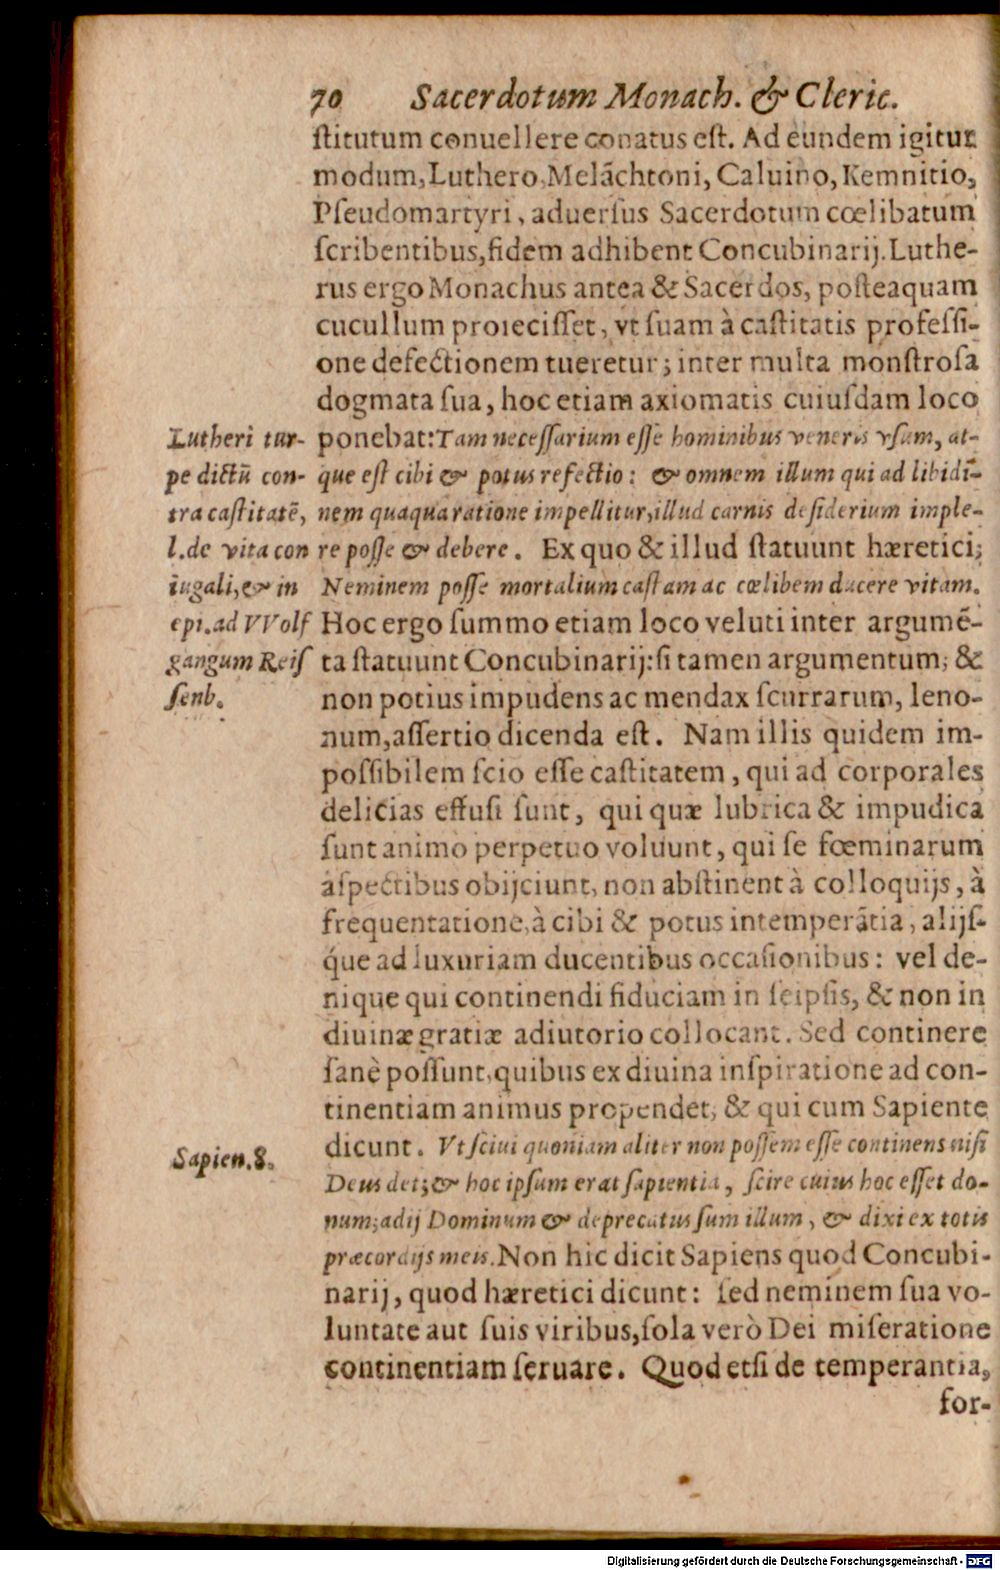 70 Sacerdotum Monach. & Cleric.
ſtitutum conuellere conatus eſt. Ad eundem igitur
modum, Luthero, Melãchtoni, Caluino, Kemnitio,
Pſeudomartyri, aduerſus Sacerdotum cœlibatum
ſcribentibus, fidem adhibent Concubinarij. Luthe-
rus ergo Monachus antea & Sacerdos, poſteaquam
cucullum proieciſſet, vt ſuam à caſtitatis profeſſi-
one defectionem tueretur; inter multa monſtroſa
dogmata ſua, hoc etiam axiomatis cuiuſdam loco
ponebat: Tam neceſſarium eſſe hominibus veneris vſum, at-
que eſt cibi & potus refectio: & omnem illum qui ad libidi-
nem quaqua ratione impellitur, illud carnis deſiderium imple-
re poſſe & debere. Ex quo & illud ſtatuunt hæretici;
Neminem poſſe mortalium caſtam ac cœlibem ducere vitam.
Hoc ergo ſummo etiam loco veluti inter argumẽ-
ta ſtatuunt Concubinarij: ſi tamen argumentum, &
non potius impudens ac mendax ſcurrarum, leno-
num, aſſertio dicenda eſt. Nam illis quidem im-
poſſibilem ſcio eſſe caſtitatem, qui ad corporales
delicias effuſi ſunt, qui quæ lubrica & impudica
ſunt animo perpetuo voluunt, qui ſe fœminarum
aſpectibus obijciunt, non abſtinent à colloquijs, à
frequentatione, à cibi & potus intemperãtia, alijſ-
q́ue ad luxuriam ducentibus occaſionibus: vel de-
nique qui continendi fiduciam in ſeipſis, & non in
diuinæ gratiæ adiutorio collocant. Sed continere
ſanè poſſunt, quibus ex diuina inſpiratione ad con-
tinentiam animus propendet, & qui cum Sapiente
dicunt. Vt ſciui quoniam aliter non poſſem eſſe continens niſi
Deus det; & hoc ipſum erat ſapientia, ſcire cuius hoc eſſet do-
num; adij Dominum & deprecatus ſum illum, & dixi ex totis
præcordijs meis. Non hic dicit Sapiens quod Concubi-
narij, quod hæretici dicunt: ſed neminem ſua vo-
luntate aut ſuis viribus, ſola verò Dei miſeratione
continentiam ſeruare. Quod etſi de temperantia,
for-
Lutheri tur-
pe dictũ con-
tra caſtitatẽ,
l. de vita con
iugali, & in
epi. ad VVolf
gangum Reiſ
ſenb.
Sapien. 8.
Digitalisierung gefördert durch die Deutsche Forschungsgemeinschaft - DFG